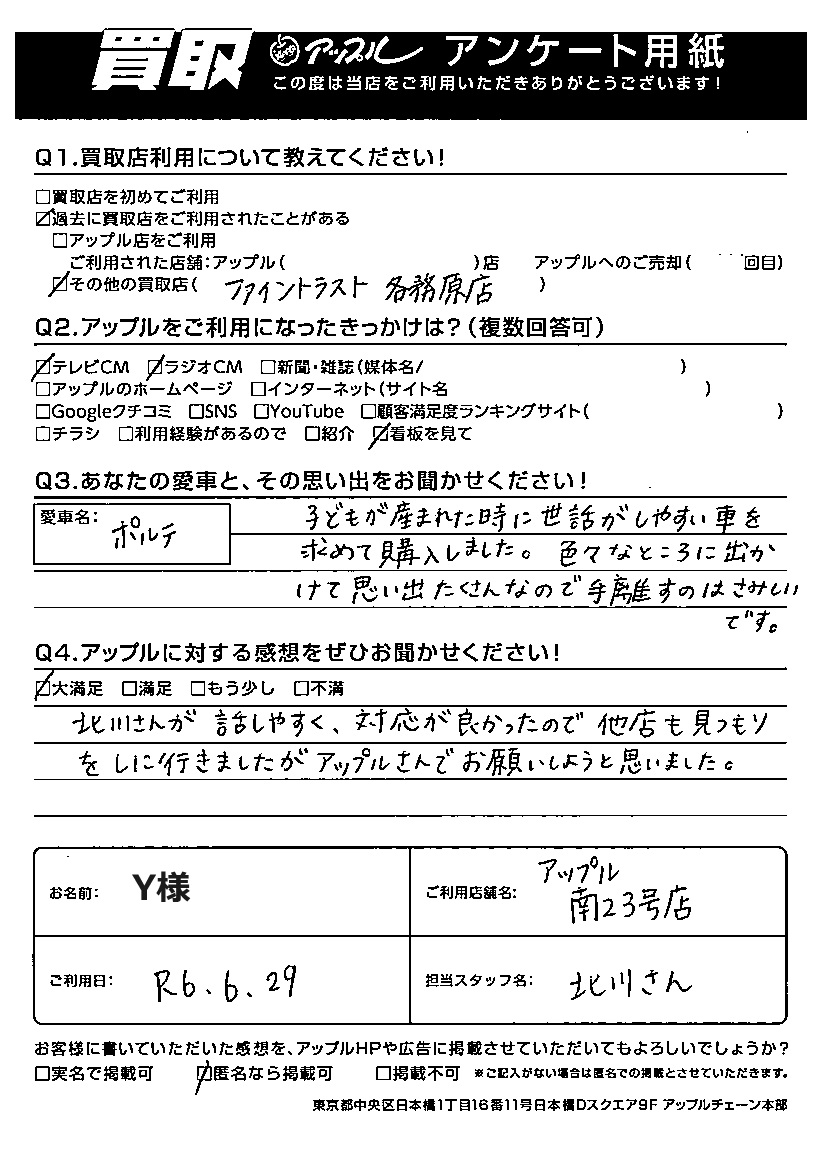 買取 アップル アンケート用紙
この度は当店をご利用いただきありがとうございます!
Q1.買取店利用について教えてください!
□買取店を初めてご利用
☑過去に買取店をご利用されたことがある
□アップル店をご利用
ご利用された店舗:アップル( )店 アップルへのご売却( 回目)
☑その他の買取店( ファイントラスト 各務原店 )
Q2.アップルをご利用になったきっかけは?(複数回答可)
☑テレビCM ☑ラジオCM □新聞・雑誌(媒体名/ )
□アップルのホームページ □インターネット(サイト名 )
□Googleクチコミ □SNS □YouTube □顧客満足度ランキングサイト( )
□チラシ □利用経験があるので □紹介 ☑看板を見て
Q3.あなたの愛車と、その思い出をお聞かせください!
愛車名: ポルテ
子どもが産まれた時に世話がしやすい車を
求めて購入しました。色々なところに出か
けて思い出たくさんなので手離すのはさみしい
です。
Q4.アップルに対する感想をぜひお聞かせください!
☑大満足 □満足 □もう少し □不満
北川さんが話しやすく、対応が良かったので他店も見つもり
をしに行きましたがアップルさんでお願いしようと思いました。
お名前: Y様
ご利用店舗名: アップル
南23号店
ご利用日: R6.6.29
担当スタッフ名: 北川さん
お客様に書いていただいた感想を、アップルHPや広告に掲載させていただいてもよろしいでしょうか?
□実名で掲載可 ☑匿名なら掲載可 □掲載不可 ※ご記入がない場合は匿名での掲載とさせていただきます。
東京都中央区日本橋1丁目16番11号日本橋Dスクエア9F アップルチェーン本部